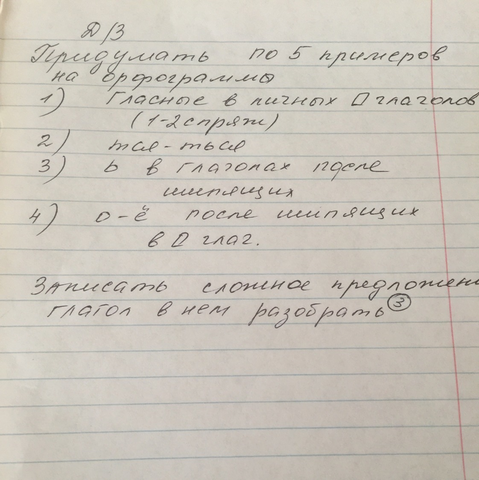 Д/З
Придумать по 5 примеров
на орфограммы
1) Гласные в личных □ глаголов
(1-2 спряж)
2) тся - ться
3) ь в глаголах после
шипящих
4) о - ё после шипящих
в □ глаг.
Записать сложное предложени
глагол в нем разобрать ③